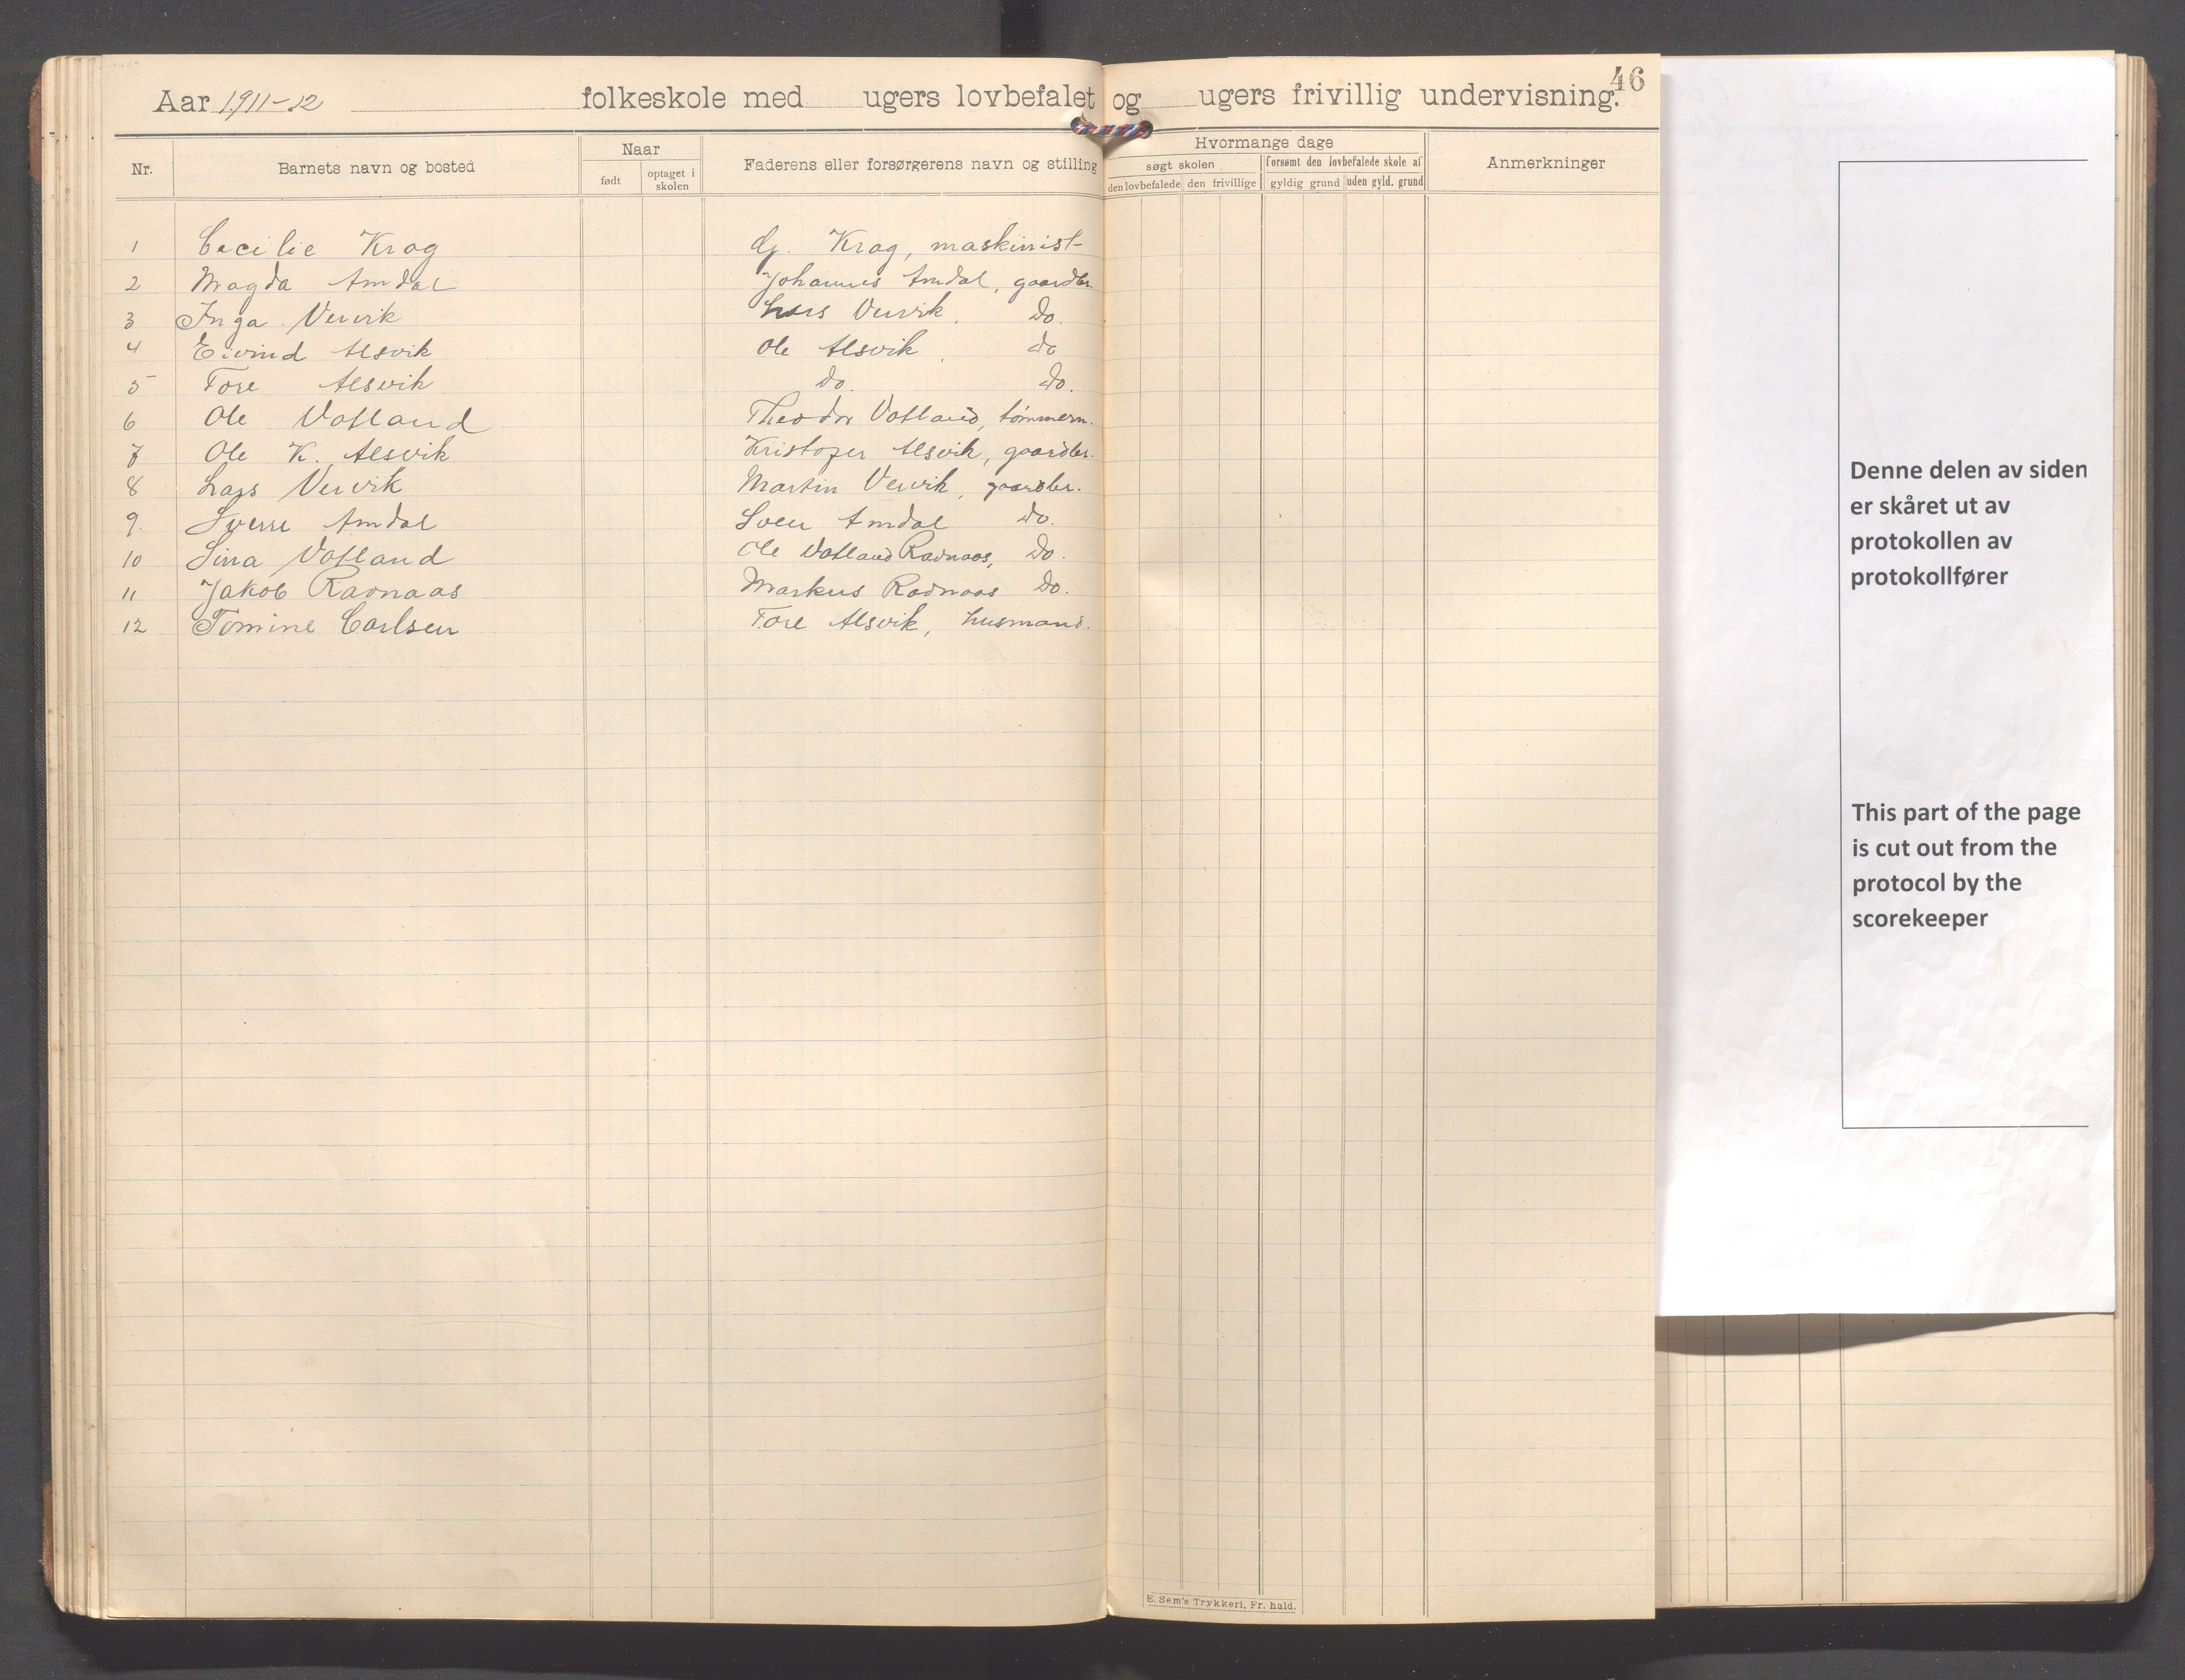 46
Aar 1911-12 folkeskole med ugers lovbefalet og ugers frivillig undervisning.
Nr. Barnets navn og bosted Naar født optaget i skolen Faderens eller forsørgerens navn og stilling Hvormange dage søgt skolen den lovbefalede den frivillige forsømt den lovbefalede skole af gyldig grund uden gyld. grund Anmerkninger
1 Cecilie Krog Krog, maskinist
2 Magda Amdal Johannes Amdal, gaardbr.
3 Inga Vervik Lars Vervik. Do.
4 Eivind Alsvik Ole Alsvik. do
5 Tore Alsvik Do. Do.
6 Ole Vatland Theodor Vatland, tømmerm.
7 Ole K. Alsvik Kristofer Alsvik, gaardbr.
8 Lars Vervik Martin Vervik, gaardbr.
9. Sverre Amdal Sven Amdal Do.
10 Sina Vatland Ole Vatland Radnaas, Do.
11 Jakob Radnaas Markus Radnaas Do.
12 Tomine Carlsen Tore Alsvik, husmand.
E. Sem's Trykkeri, Fr. hald.
Denne delen av siden
er skåret ut av
protokollen av
protokollfører
This part of the page
is cut out from the
protocol by the
scorekeeper